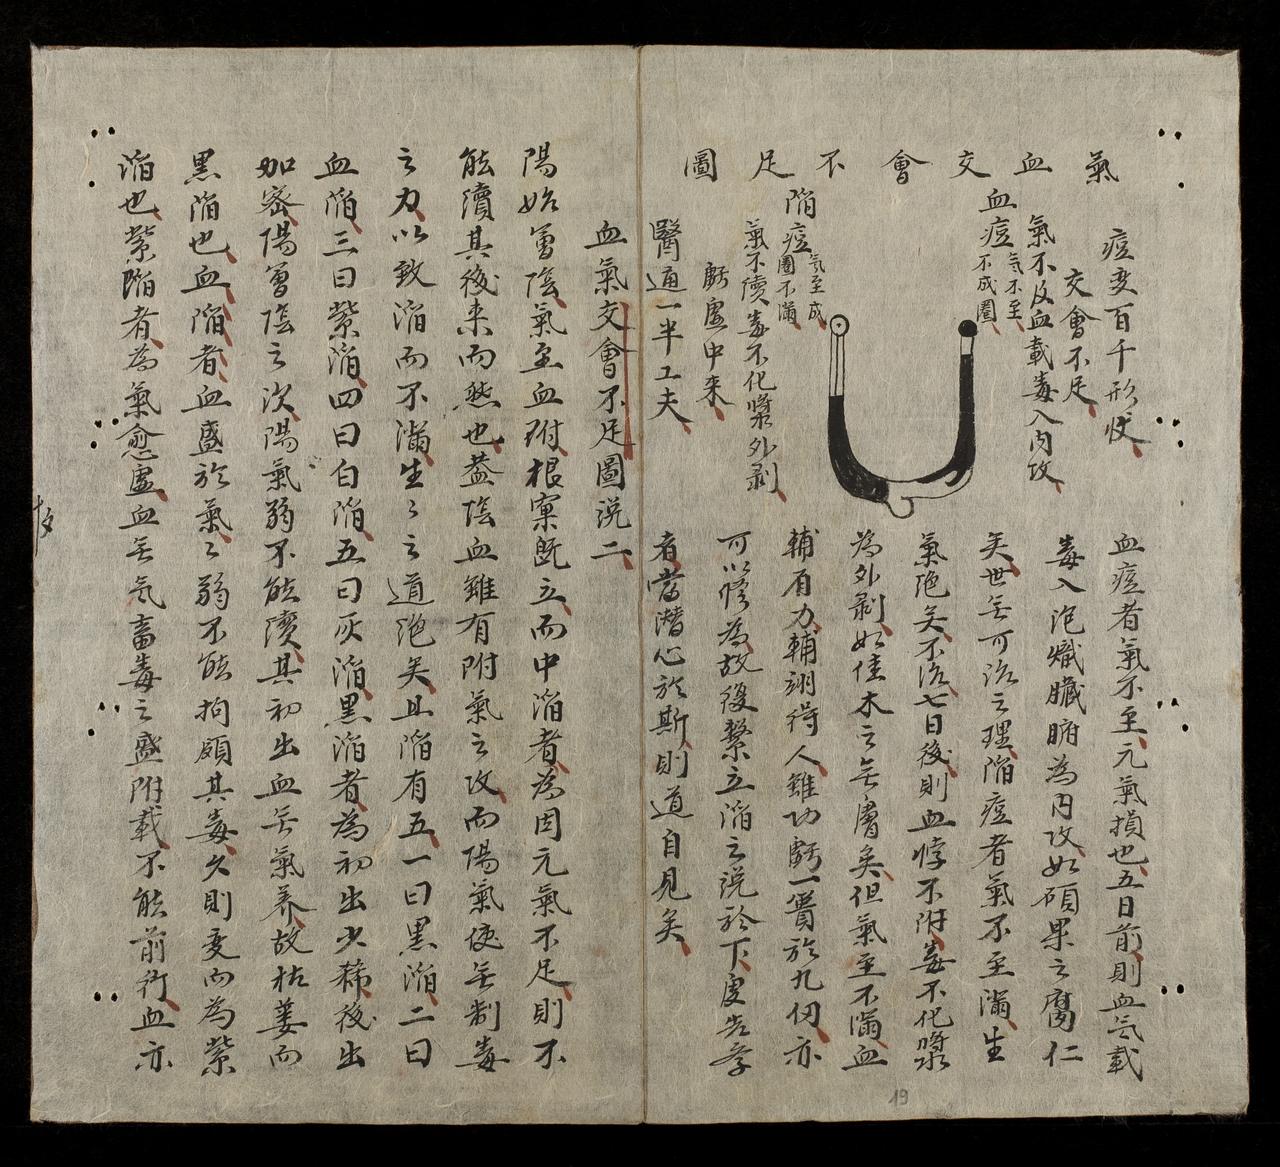 氣血交會不足圖
痘变百千形状
交會不足
氣不及血載毒入内攻
血痘氣不至不成圈
陷痘氣至成圈不滿
氣不續毒不化漿外剥
虧盧中来
醫通一半工夫
血痘者氣不至元氣損也五日前則血氣載
毒入泡熾臟腑為内攻如碩果之腐仁
矣世無可治之理陷痘者氣不至滿生
氣絶矣不治七日後則血悖不附毒不化漿
為外剥如佳木之無膚矣但氣至不滿血
輔有力輔翊得人雖功虧一簣於九仞亦
可以修為故復繫立陷之説於下虔告孛
者當潛心於斯則道自見矣
血氣交會不足圖説二
陽始會陰氣至血附根窠既立而中陷者為因元氣不足則不
能續其後来而然也盖陰血雖有附氣之攻而陽氣使無制毒
之力以致陷而不滿生〻之道絶矣且陷有五一曰黒陷二曰
血陷三曰紫陷四曰白陷五曰灰陷黒陷者為初出少稀後出
加密陽會陰之次陽氣弱不能續其初出血無氣养故枯萎而
黒陷也血陷者血盛於氣〻弱不能拘頋其毒久則变而為紫
陷也紫陷者為氣愈虚血無氣畜毒之盛附載不能前行血亦
19